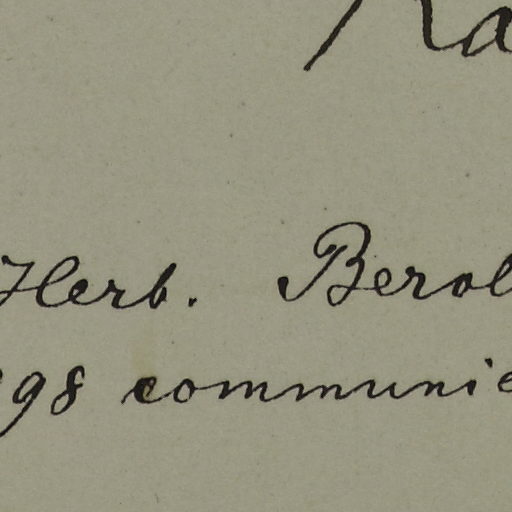 Ra
Herb. Berol
98 communie